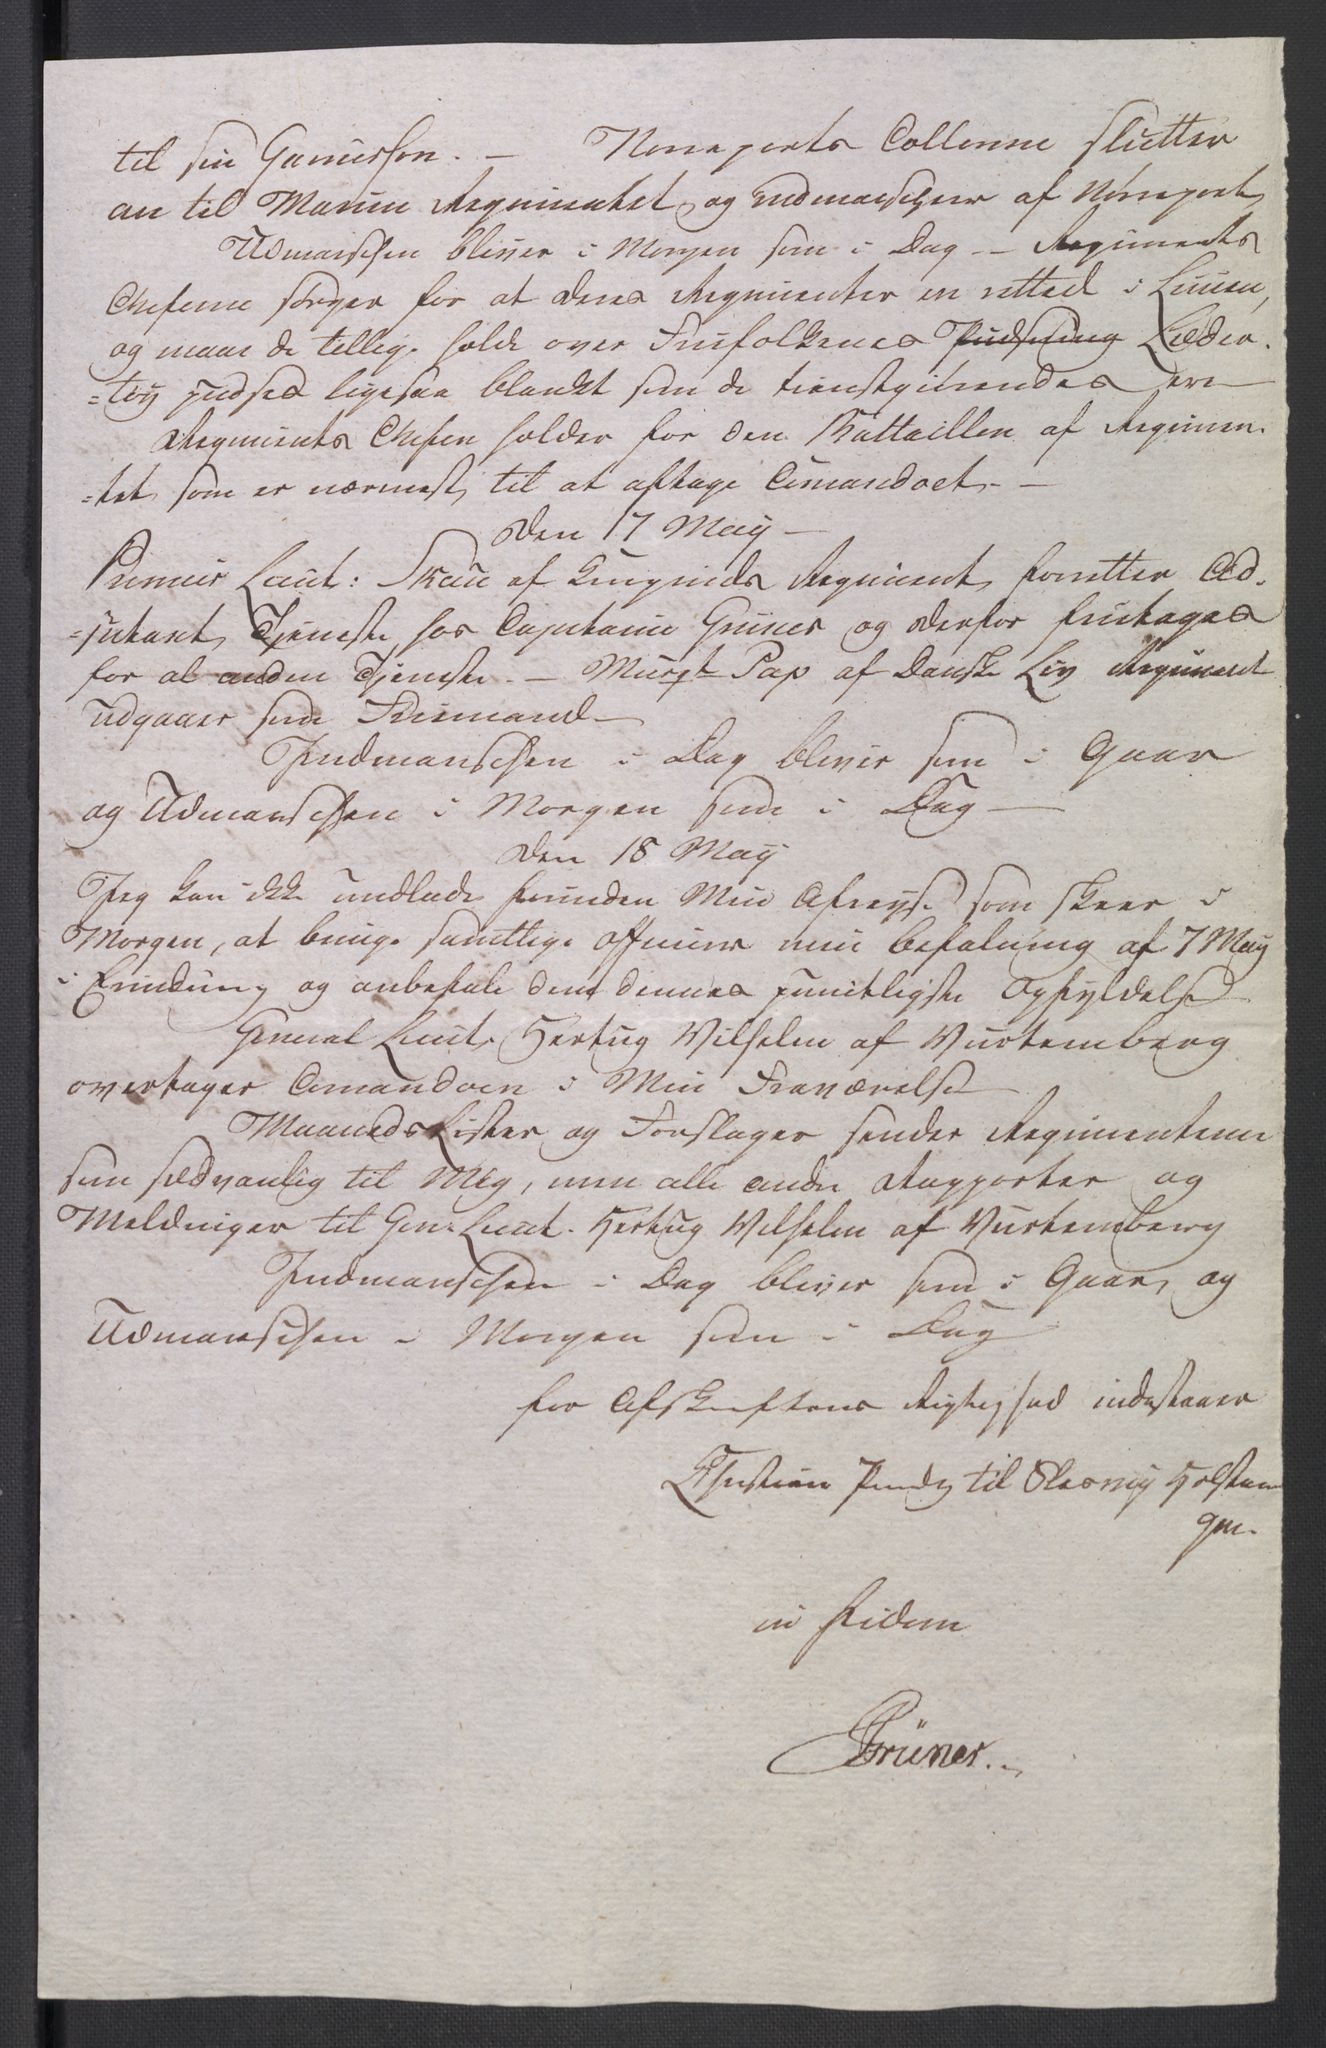 til sin Garnisson. — Nørreports Collonne slutter
an til Marine Regimentet og indmarscherer af Nørreport
Udmarschen bliver i Morgen som i Dag — Regiments
Cheferne sørger for at deres Regimenter er rettet i Linien,
og maae de tillige holde over Frifolkenes Pudsning Læder-
=tøy pudses ligesaa blankt som de tienstgiørendes ere
Regiments Chefen holder for den Battaillon af Regimen-
=tet som er nærmest til at aftage Comandoet. —
den 17 May —
Premier Lieut: Skau af Kongens Regiment forretter Ad-
=jutant Tjeneste hos Capitaine Grüner og derfor fritages
for al anden Tjeneste. — Musqt Pap af Danske Liv Regiment
udgaaer som Frimand —
Indmarschen i Dag bliver som i Gaar
og Udmarschen i Morgen som i Dag —
den 18 May
Jeg kan ikke undlade forinden Min Afreyse som skeer i
Morgen, at bringe samtlige Officiers min befaling af 7 May
i Erindring og anbefale dem dennes punctligste Opfyldelse
General Lieut. Hertug Wilhelm af Würtemberg
overtager Comandoen i Min Fraværelse
Maaneds Lister og Forslager sender Regimenterne
som sædvanlig til Mig, men alle andre Rapporter og
Meldinger til Gen: Lieut. Hertug Wilhelm af Würtemberg
Indmarschen i Dag bliver som i Gaar, og
Udmarschen i Morgen som i Dag
for Afskriftens Rigtighed indestaaer
Christian Prindz til Slesvig Holsten
in fidem
Grüner.